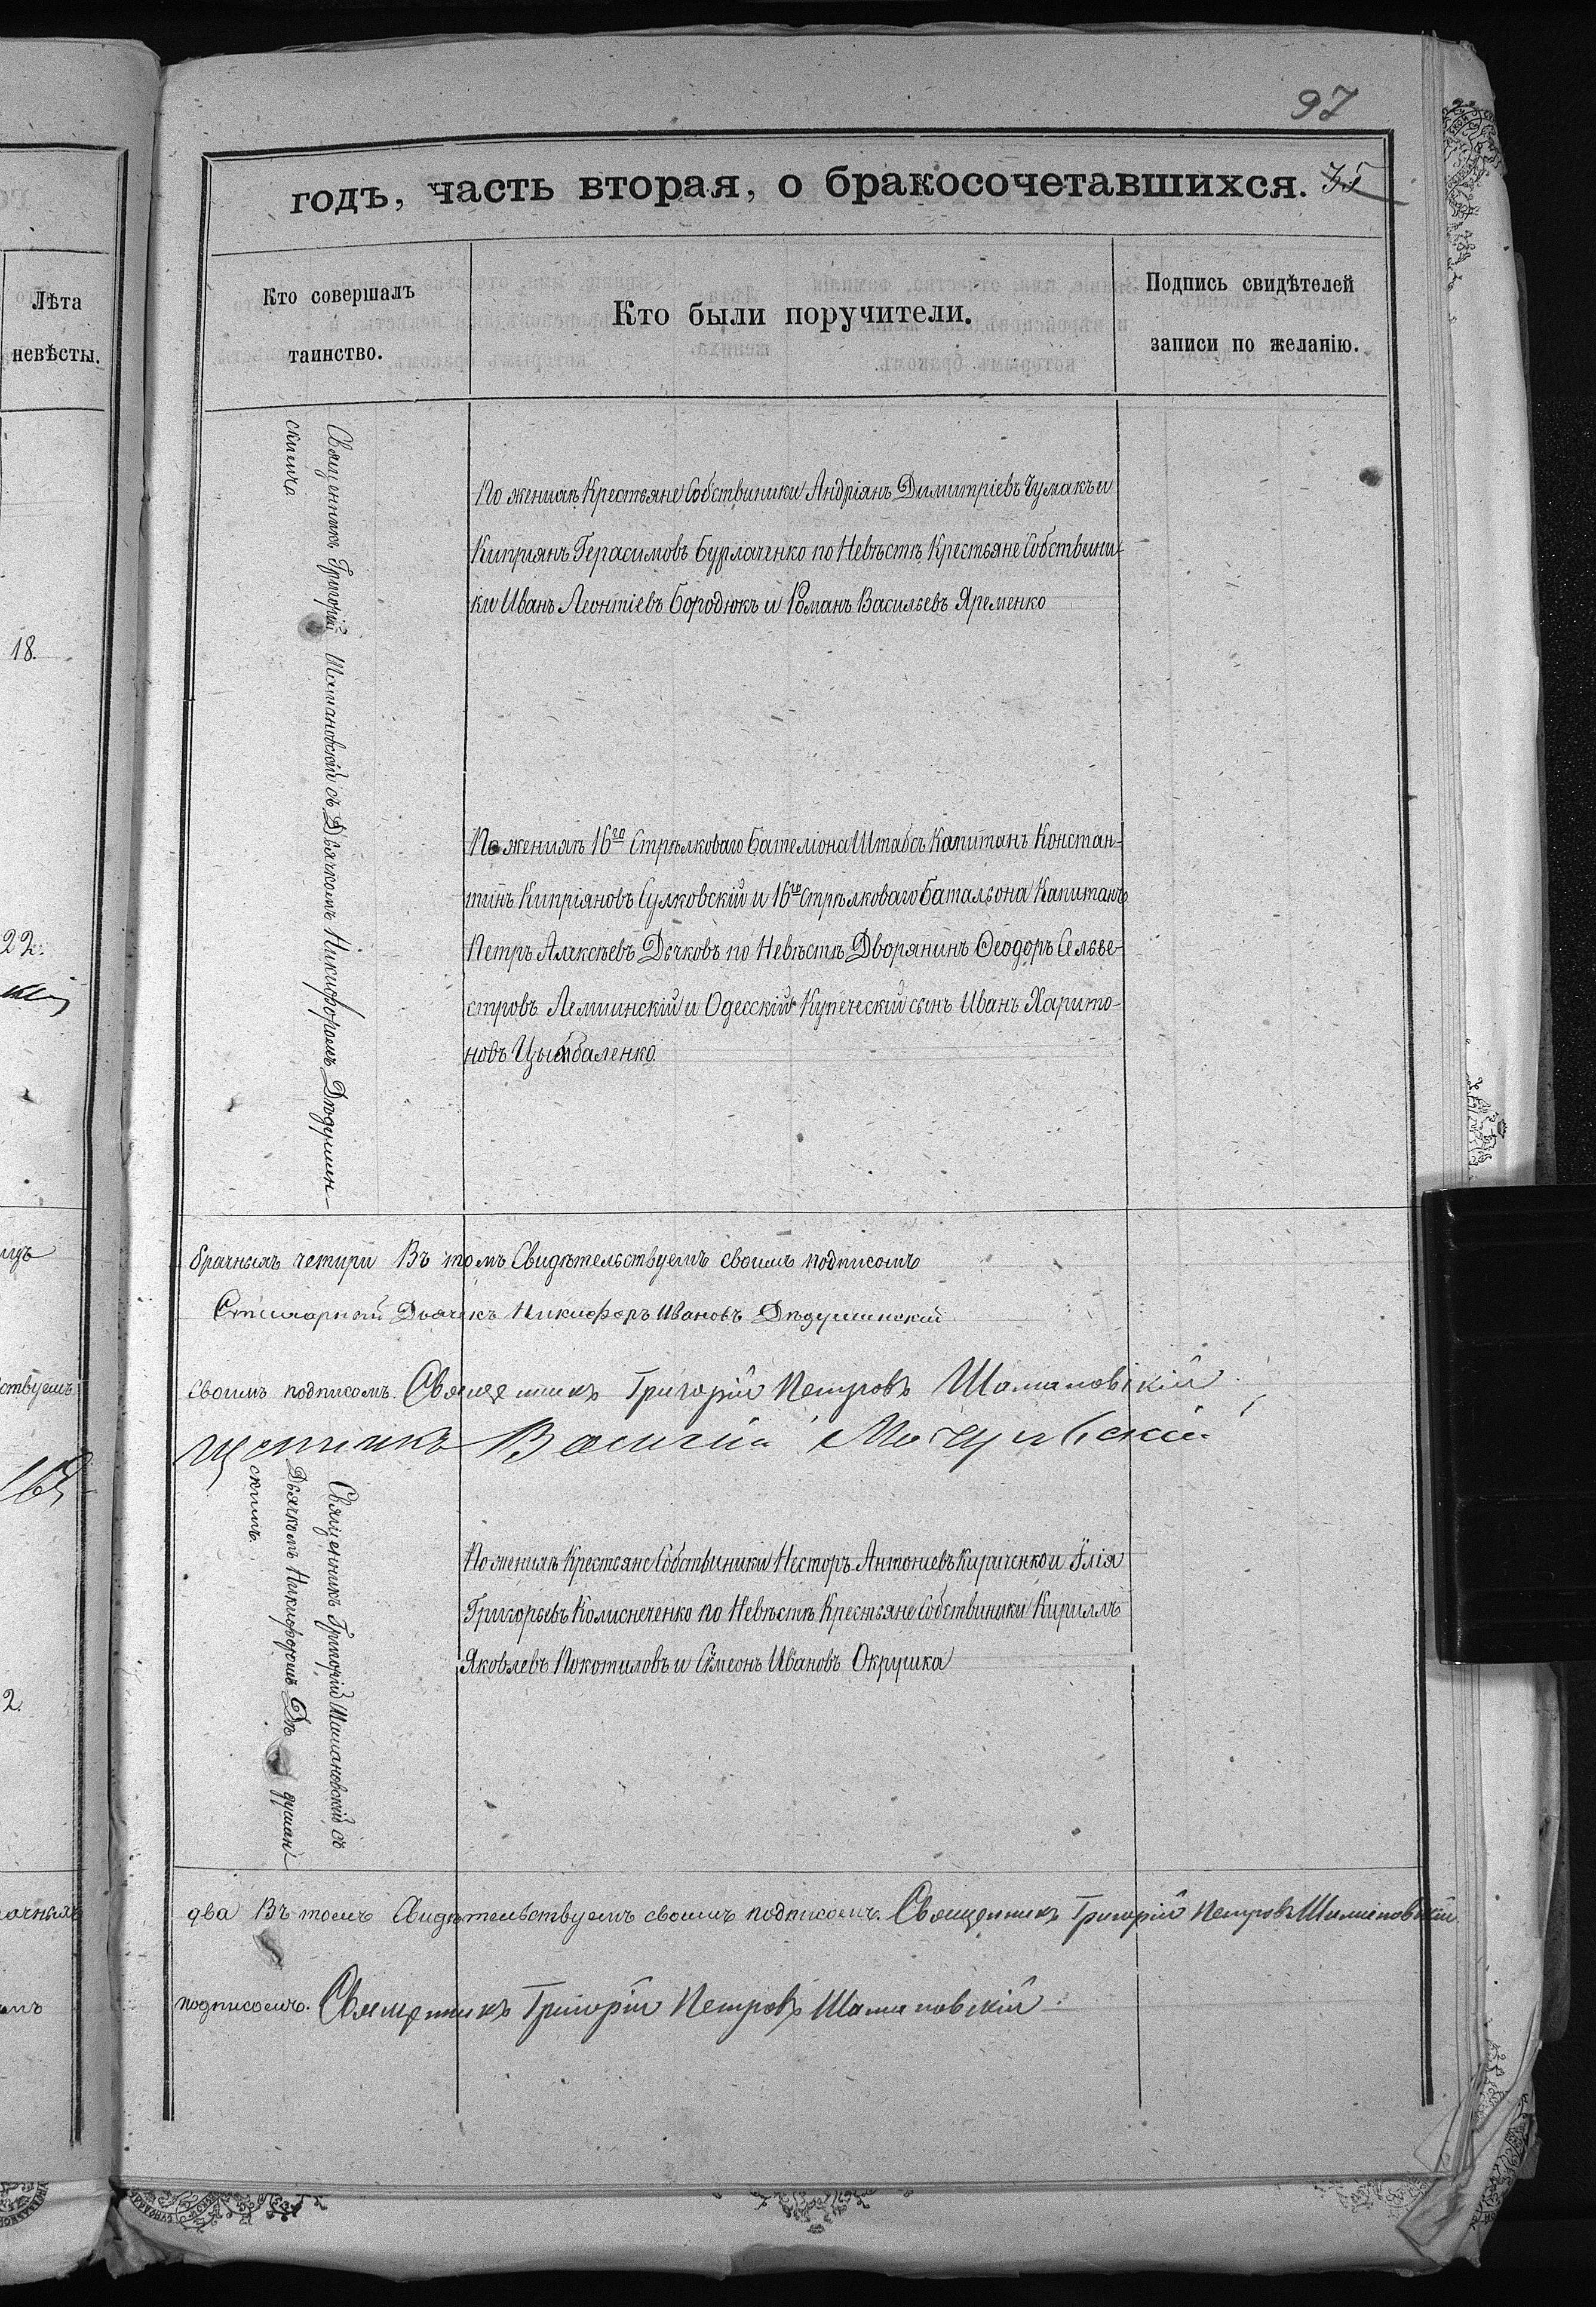 97
годъ, часть вторая, о бракосочетавшихся. 35
Лѣта
невѣсты.
Кто совершалъ
таинство.
Кто были поручители.
Подпись свидѣтелей
записи по желанію.
18.
22.
Священникъ Григорій Шамановскій съ Дьячкомъ Никифоромъ Дѣдушин-
скимъ
По женихѣ Крестьяне Собствиники Андріянъ Димитріевъ Чумакъ и
Киприянъ Герасимовъ Бурлаченко по Невѣстѣ Крестьяне Собствини-
ки Иванъ Леонтіевъ Бородюкъ и Романъ Васильевъ Яременко
По женихѣ 16го Стрѣлковаго Бателіона Штабсъ Капитанъ Констан-
тинъ Кипріяновъ Сулковскій и 16го Стрѣлковаго Батальона Капитанъ
Петръ Алексѣевъ Дьчковъ по Невѣстѣ Дворянинъ Ѳеодоръ Сельве-
стровъ Лемшинскій и Одесскій Купеческій сынъ Иванъ Харито-
новъ Цымбаленко
брачныхъ четыри Въ томъ Свидѣтельствуемъ своимъ подписомъ
Дьячекъ Никифоръ Ивановъ Дѣдушинскій
ствуемъ
своимъ подписомъ. Священникъ Григорій Петровъ Шамановскій
Василій
Священникъ Григорій Шамановскій съ
Дьячкомъ Никифоромъ Дѣ душин
скимъ.
2.
По женихѣ Крестьяне Собствиники Несторъ Антоніевъ Кириченко и Ілія
Григорьевъ Колисниченко по Невѣстѣ Крестьяне Собствиники Кириллъ
Яковлевъ Покотиловъ и Сѵмеонъ Ивановъ Окрушка
два Въ томъ Свидѣтельствуемъ своимъ подписомъ. Священникъ Григорій Петровъ Шамановскій
подписомъ. Священникъ Григорій Петровъ Шамановскій